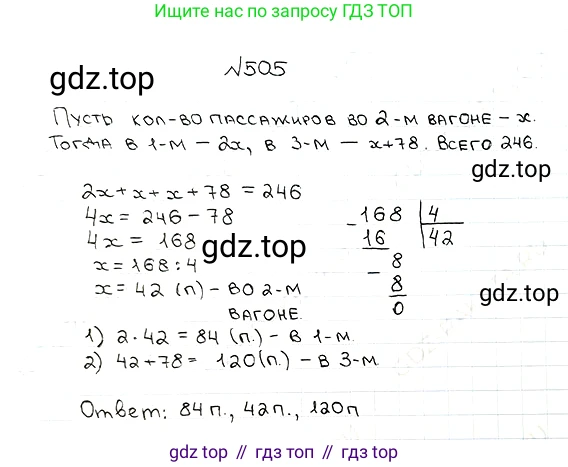 Ищите нас по запросу ГДЗ ТОП
№505
gdz.top
Пусть кол-во пассажиров во 2-м вагоне – x.
Тогда в 1-м – 2x, в 3-м – x+78. Всего 246.
gdz.top
2x+x+x+78=246
4x= 246-78
4x = 168
x=168:4
x= 42 (п) – во 2-м
вагоне.
-168 4
16 42
- 8
8
0
gdz.top
gdz.top
1) 2·42 = 84 (п.) – в 1-м.
2) 42+78= 120(п.) – в 3-м.
Ответ: 84п., 42п., 120п
gdz.top // гдз.топ // gdz.top // гдз.топ